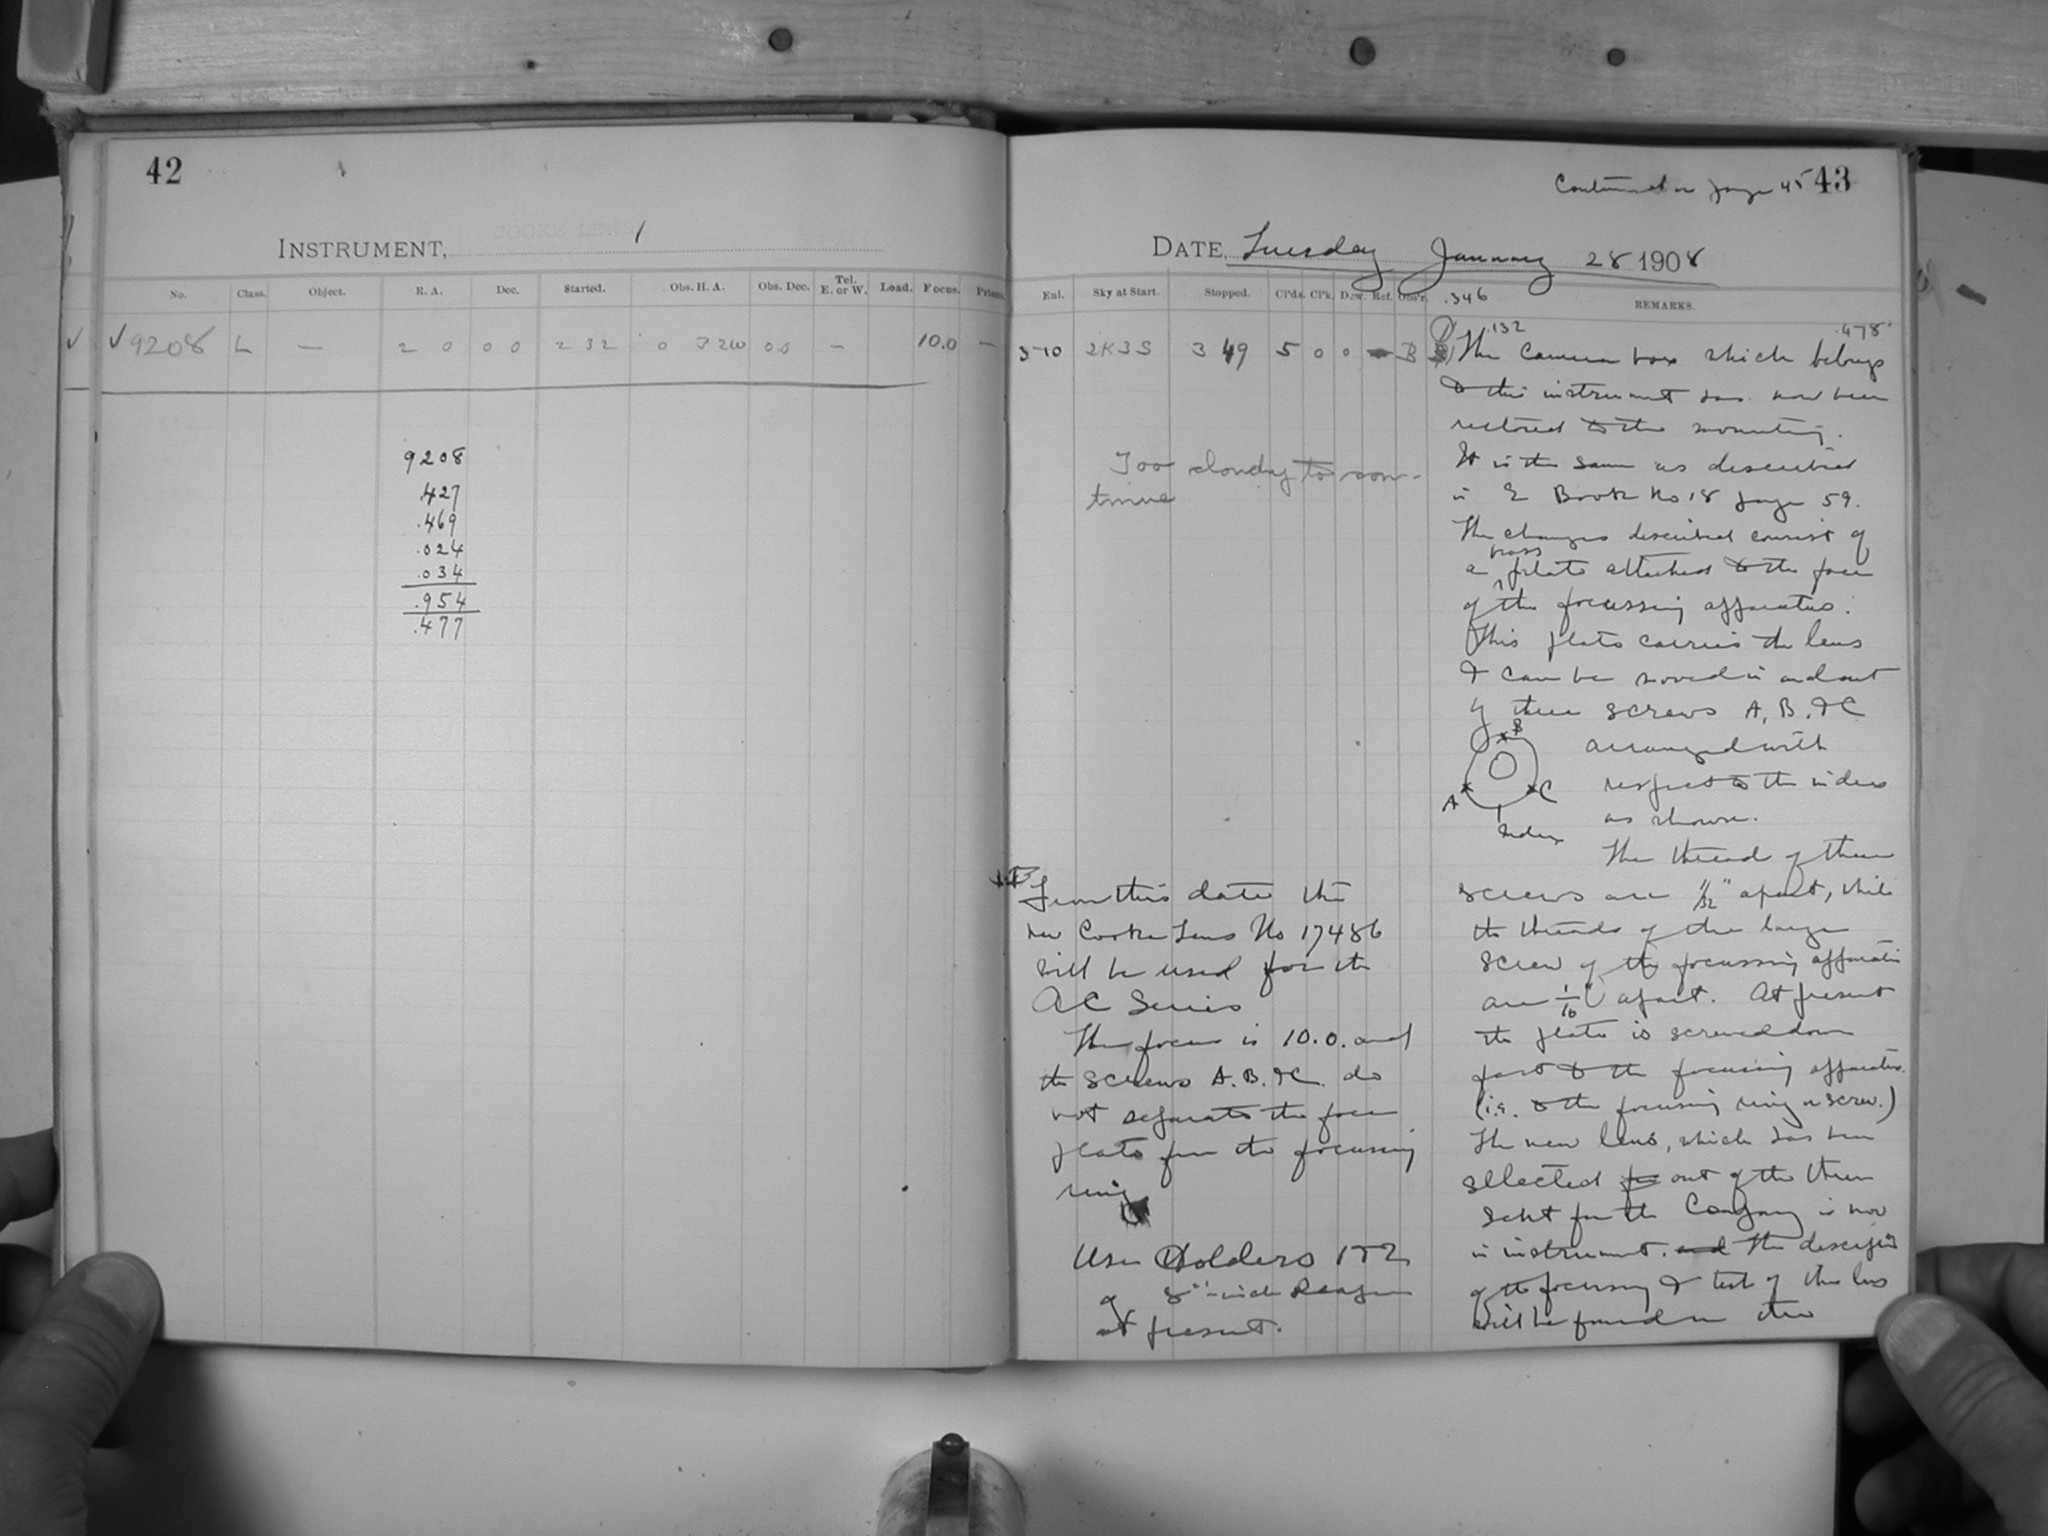 42
INSTRUMENT, COOKE LENS 1
No. Class. Object. R. A. Dec. Started. Obs. H. A. Obs. Dec. Tel. E. or W. Load. Focus. Prisms.
✓ ✓ 9208 L — 2 0 0 0 2 32 0 32W 00 — 10.0 —
9208
.427
.469
.024
.034
.954
.477
Continued on page 45 43
DATE, Tuesday January 28 1908
Exl. Sky at Start. Stopped. Cl'ds. Cl'k. Dew. Ref. Obs'r. .346 REMARKS.
.132 .478
3-10 2K3S 3 49 5 0 0 B
Too cloudy to con-
tinue
From this date the
new Cooke Lens No 17486
will be used for the
AC Series
The focus is 10.0. and
the screws A. B. & C. do
not separate the face
plate from the focussing
ring
Use Holders 1 & 2
of 8"-inch Draper
at present.
The camera box which belongs
to this instrument has now been
restored to the mounting.
It is the same as described
in E Book No 18 page 59.
The changes described consist of
a brass plate attached to the face
of the focussing apparatus.
This plate carries the lens
& can be moved in and out
by three screws A, B. & C
B
A
C
Index
arranged with
respect to the index
as shown.
The thread of these
screws are 1/32" apart, while
the threads of the large
screw of the focussing apparatus
are 1/10" apart. At present
the plate is screwed down
fast to the focusing apparatus
(i.e. to the focusing ring or screw.)
The new lens, which has been
selected out of the three
sent from the Company is now
in instrument. and The description
of the focusing & test of this lens
will be found in the